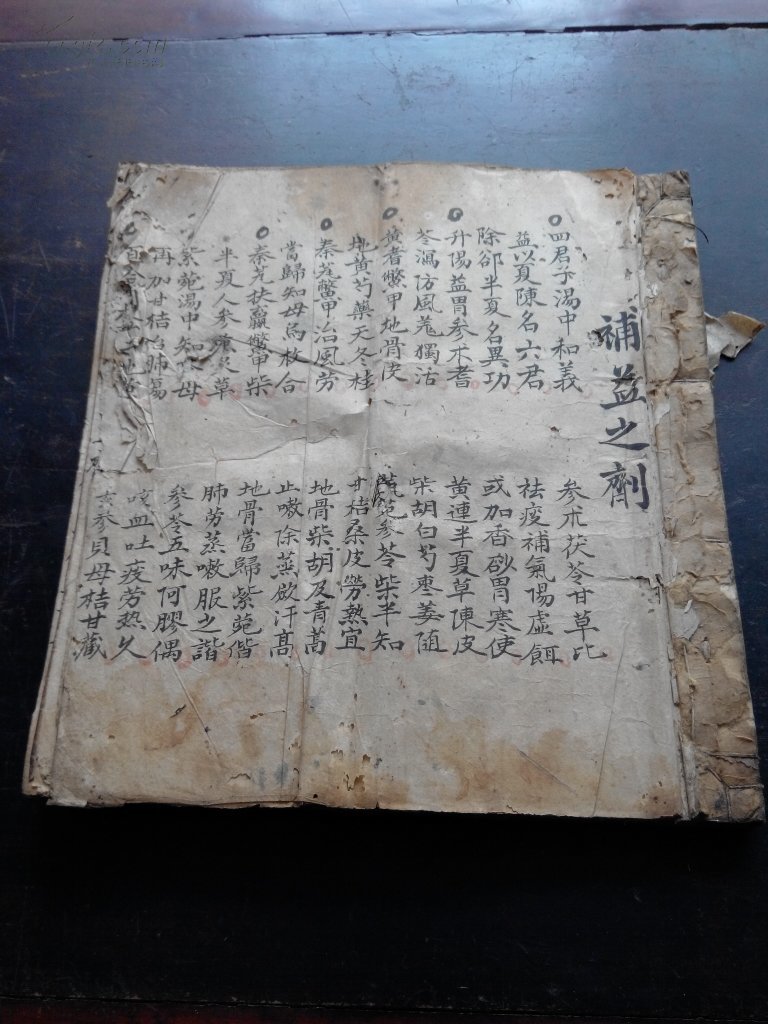 補益之劑
四君子湯中和義 參朮茯苓甘草比
益以夏陳名六君 祛疫補氣陽虛餌
除卻半夏名異功 或加香砂胃寒使
升陽益胃參朮耆 黃連半夏草陳皮
苓瀉防風羌獨活 柴胡白芍棗姜随
黃耆鱉甲地骨皮 菀參苓柴半知
地黃芍藥天冬桂 甘桔桑皮勞熱宜
秦艽鱉甲治風勞 地骨柴胡及青蒿
當歸知母烏枚合 止嗽除蒸歛汗髙
秦艽扶羸鱉甲柴 地骨當歸紫菀偕
半夏人參兼炙草 肺劳蒸嗽服之諧
紫菀湯中知貝母 參苓五味阿膠偶
再加甘桔治肺傷 咳血吐疫劳热久
百合固金二地黃 玄參貝母桔甘藏